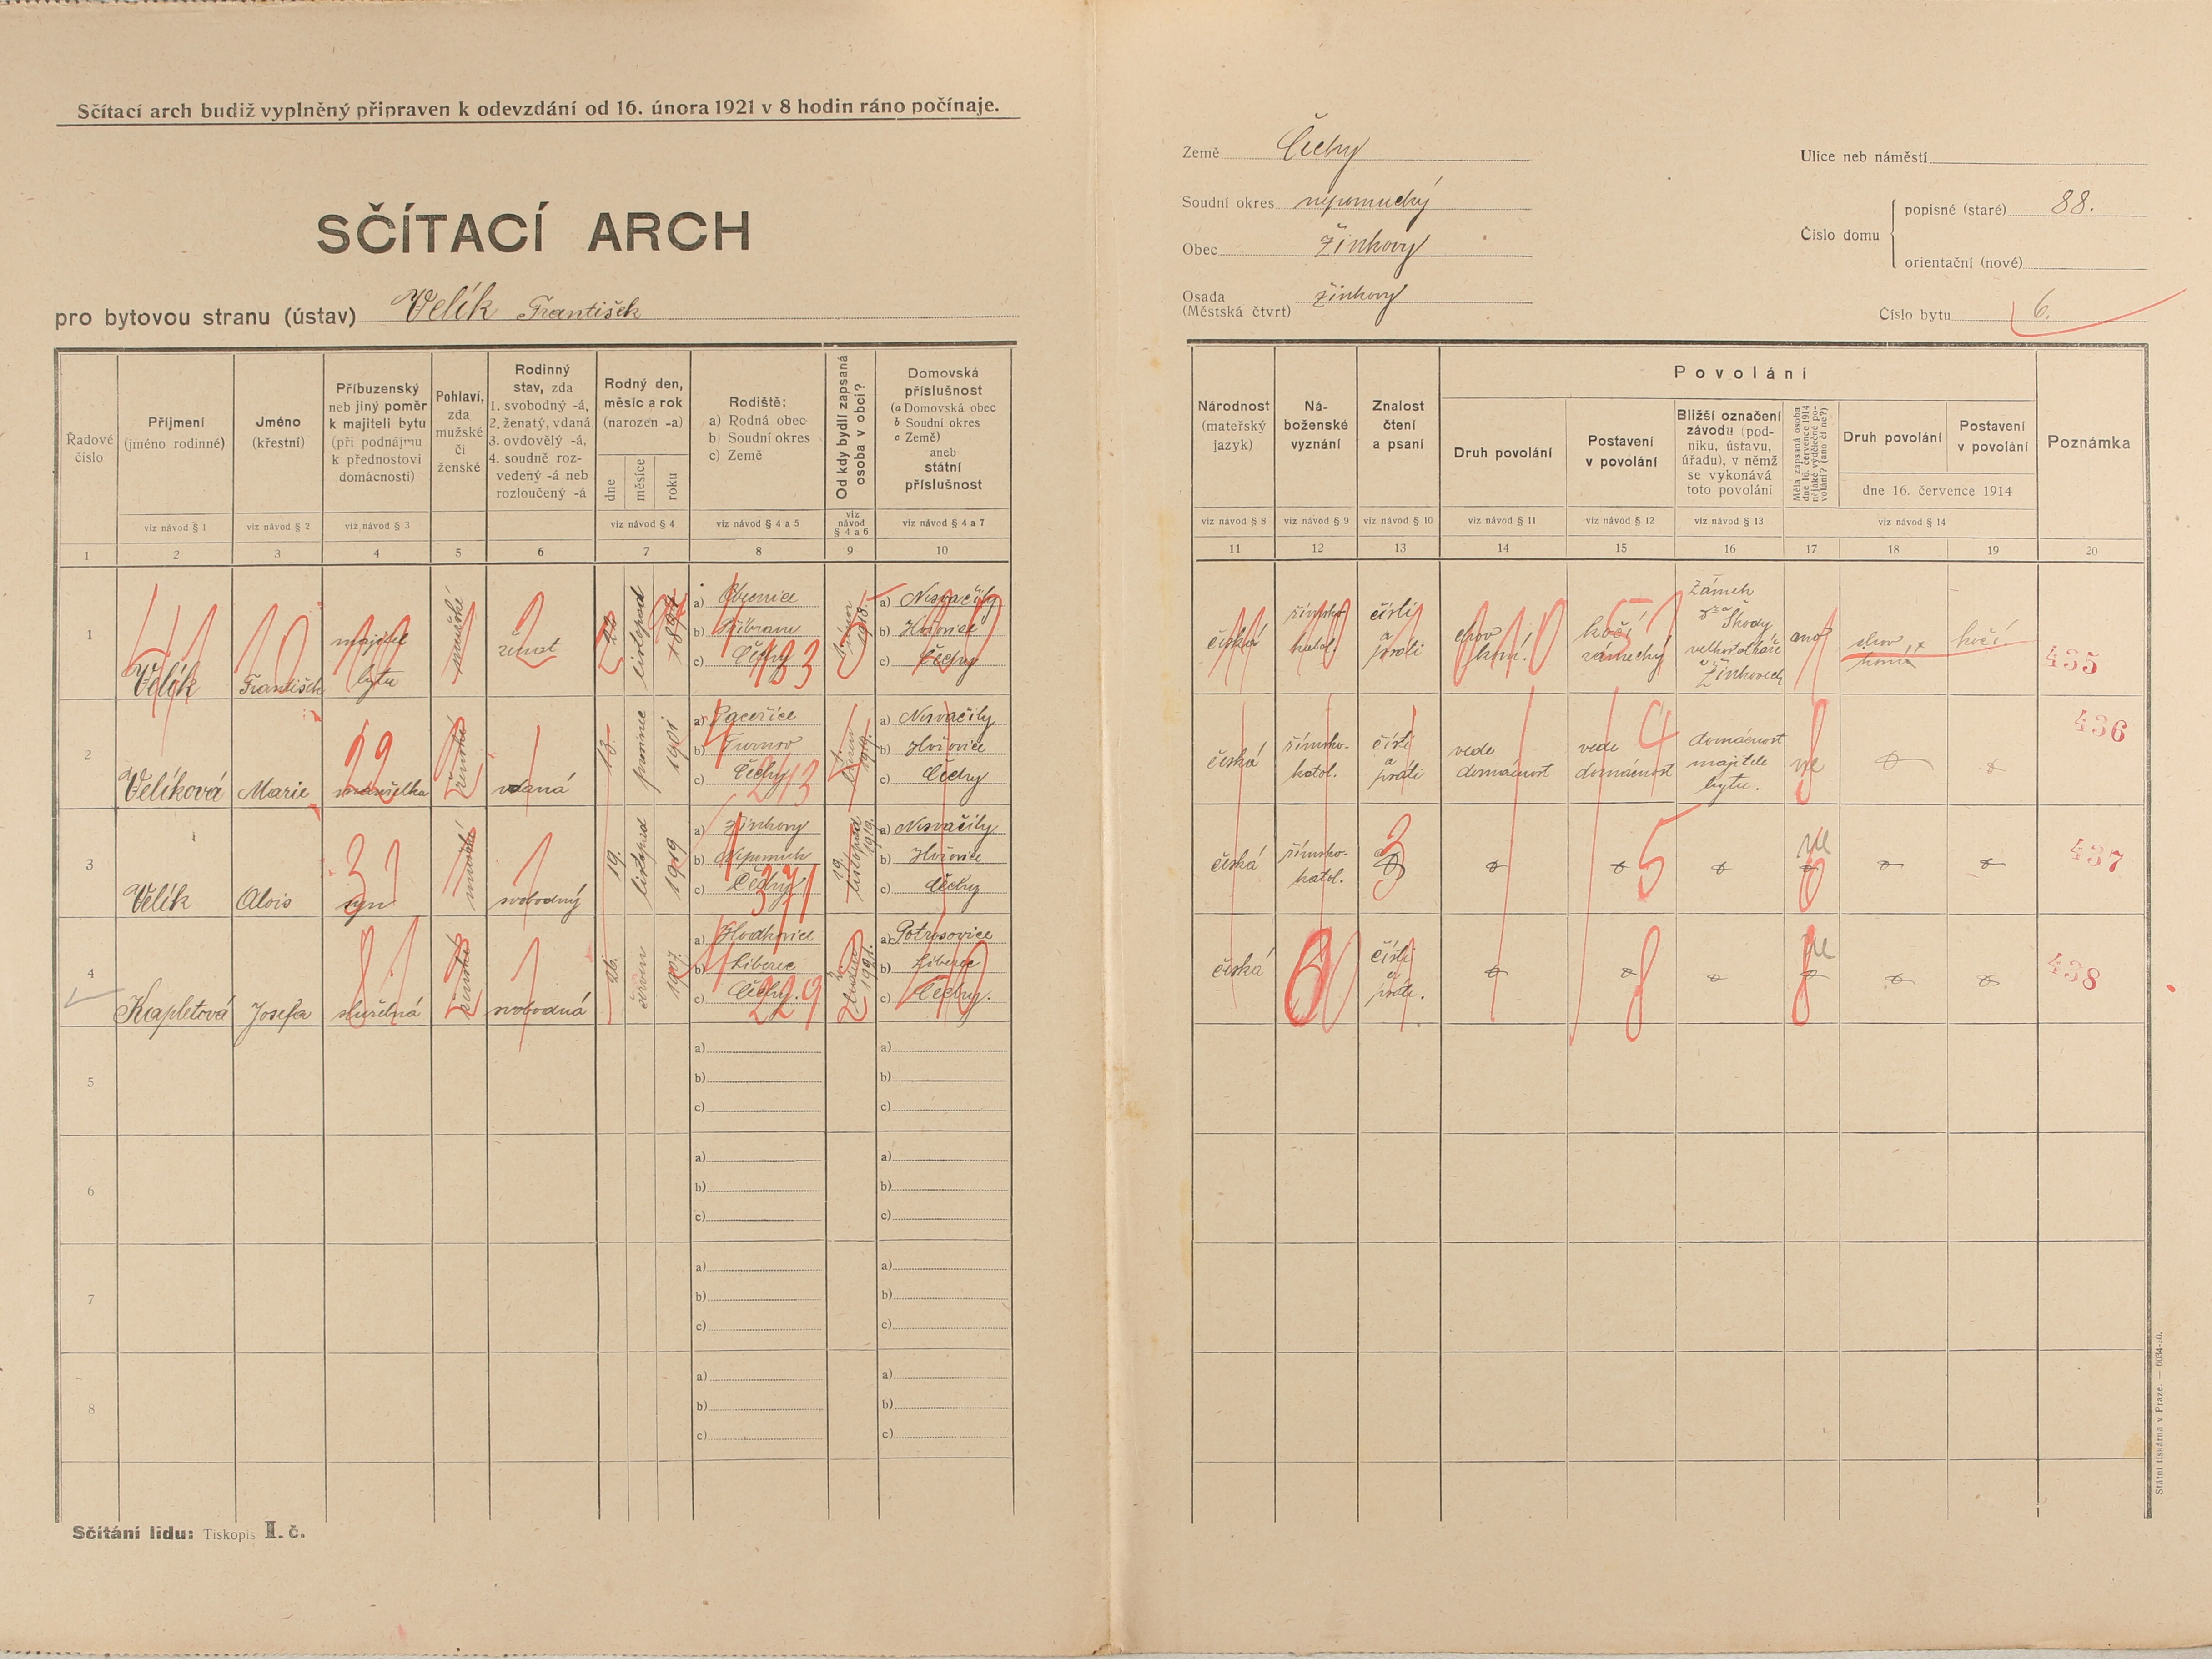 Sčítací arch budiž vyplněný připraven k odevzdání od 16. února 1921 v 8 hodin ráno počínaje.
SČÍTACÍ ARCH
pro bytovou stranu (ústav) Velík František
Země Čechy
Soudní okres nepomucký
Obec Žinkovy
Osada
(Městská čtvrt) Žinkovy
Ulice neb náměstí
Číslo domu
popisné (staré) 88.
orientační (nové)
Číslo bytu 6.
Řadové
číslo
1
Příjmení
(jméno rodinné)
viz návod § 1
2
Jméno
(křestní)
viz návod § 2
3
Příbuzenský
neb jiný poměr
k majiteli bytu
(při podnájmu
k přednostovi
domácnosti)
viz návod § 3
4
Pohlaví,
zda
mužské
či
ženské
5
Rodinný
stav, zda
1. svobodný -á,
2. ženatý, vdaná
3. ovdovělý -á,
4. soudně roz-
vedený -á neb
rozloučený -á
6
Rodný den,
měsíc a rok
(narozen -a)
dne
měsíce
roku
viz návod § 4
7
Rodiště:
a) Rodná obec
b) Soudní okres
c) Země
viz návod § 4 a 5
8
Od kdy bydlí zapsaná
osoba v obci?
viz
návod
§ 4 a 6
9
Domovská
příslušnost
(a Domovská obec
b Soudní okres
c Země)
aneb
státní
příslušnost
viz návod § 4 a 7
10
Národnost
(mateřský
jazyk)
viz návod § 8
11
Ná-
boženské
vyznání
viz návod § 9
12
Znalost
čtení
a psaní
viz návod § 10
13
Povolání
Druh povolání
viz návod § 11
14
Postavení
v povolání
viz návod § 12
15
Bližší označení
závodu (pod-
niku, ústavu,
úřadu), v němž
se vykonává
toto povolání
viz návod § 13
16
Měla zapsaná osoba
dne 16. července 1914
nějaké výdělečné po-
volání? (ano či ne?)
17
Druh povolání
18
Postavení
v povolání
19
dne 16. července 1914
viz návod § 14
Poznámka
20
1
Velík
František
majitel
bytu
mužské
ženat
listopad
a) Obecnice
b) Příbram
c) Čechy
483
únor
1918.
a) Nesvačily
b) Hořovice
c) Čechy
česká
římsko
katol.
čísti
a
psáti
chov
koní.
kočí
zámecký
Zámek
Škody
velkostatkáře
v Žinkovech
ano
chov
koní
kočí
435
2
Velíková
Marie
manželka
ženské
vdaná
13.
prosinec
1901
a) Paceřice
b) Turnov
c) Čechy
213
1919.
a) Nesvačily
b) Hořovice
c) Čechy
česká
římsko-
katol.
čísti
a
psáti
vede
domácnost
vede
domácnost
domácnost
majitele
bytu.
ne
436
3
Velík
Alois
syn
mužské
svobodný
19.
listopad
1919
a) Žinkovy
b) Nepomuk
c) Čechy
371
19.
listopad
1919.
a) Nesvačily
b) Hořovice
c) Čechy
česká
římsko-
katol.
ne
437
4
Kapletová
Josefa
služebná
ženské
svobodná
26.
červen
1907.
a) Hodkovice
b) Liberec
c) Čechy.
229
1921.
a) Petrašovice
b) Liberec
c) Čechy.
česká
čísti
a
psáti.
ne
438
5
a)
b)
c)
a)
b)
c)
6
a)
b)
c)
a)
b)
c)
7
a)
b)
c)
a)
b)
c)
8
a)
b)
c)
a)
b)
c)
Sčítání lidu: Tiskopis II. č.
Státní tiskárna v Praze. — 6034-20.